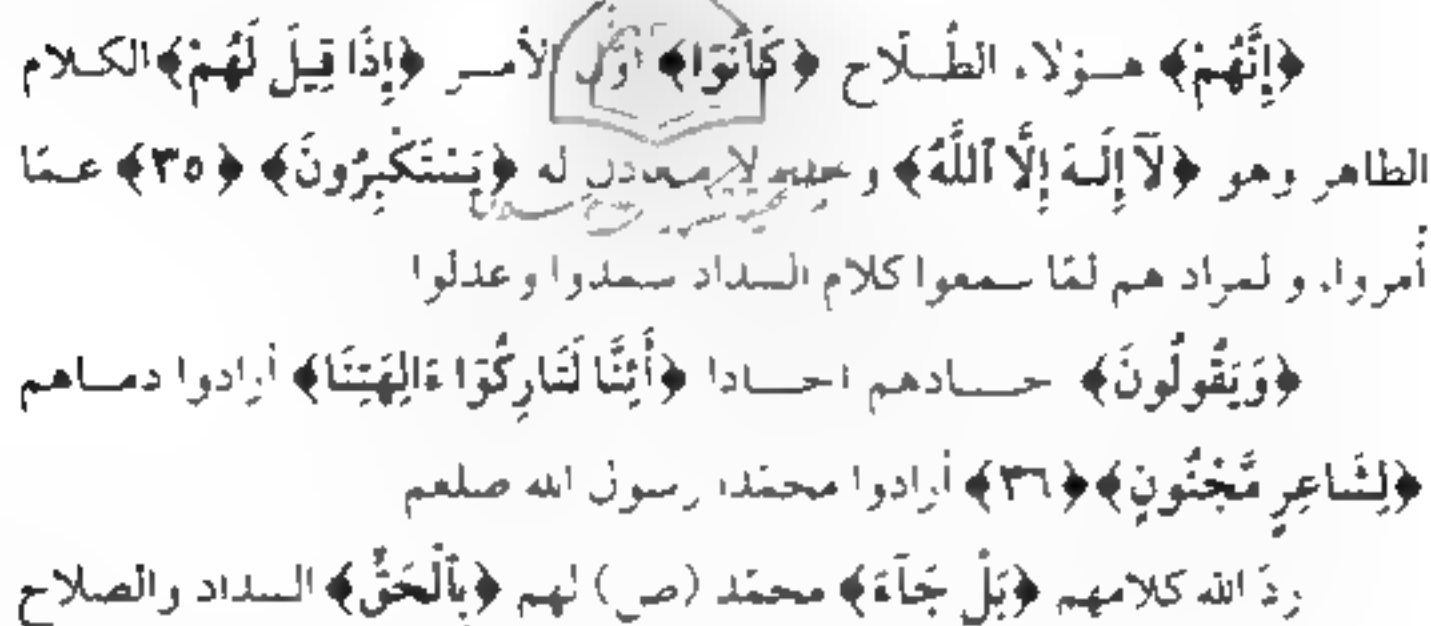 ﴿إِنَّهُمْ﴾ هـؤلاء الطُـلّاح ﴿كَانُوٓا﴾ اوّل الأمـر ﴿إِذَا قِيلَ لَهُمْ﴾ الكـلام
الطاهر وهو ﴿لَآ إِلَـٰهَ إِلَّا ٱللَّهُ﴾ و لا معادل له ﴿يَسْتَكْبِرُونَ﴾ ﴿٣٥﴾ عـمّا
أُمروا، و المراد هم لمّا سـمعوا كلام السـداد سمدوا وعدلوا
﴿وَيَقُولُونَ﴾ احـادا ﴿أَئِنَّا لَتَارِكُوٓا ءَالِهَتِنَا﴾ أرادوا دمـاهم
﴿لِشَاعِرٍ مَّجْنُونٍ﴾ ﴿٣٦﴾ أرادوا محمّدا رسول الله صلعم
ردّ الله كلامهم ﴿بَلْ جَآءَ﴾ محمّد (ص) لهم ﴿بِٱلْحَقِّ﴾ السـداد والصلاح